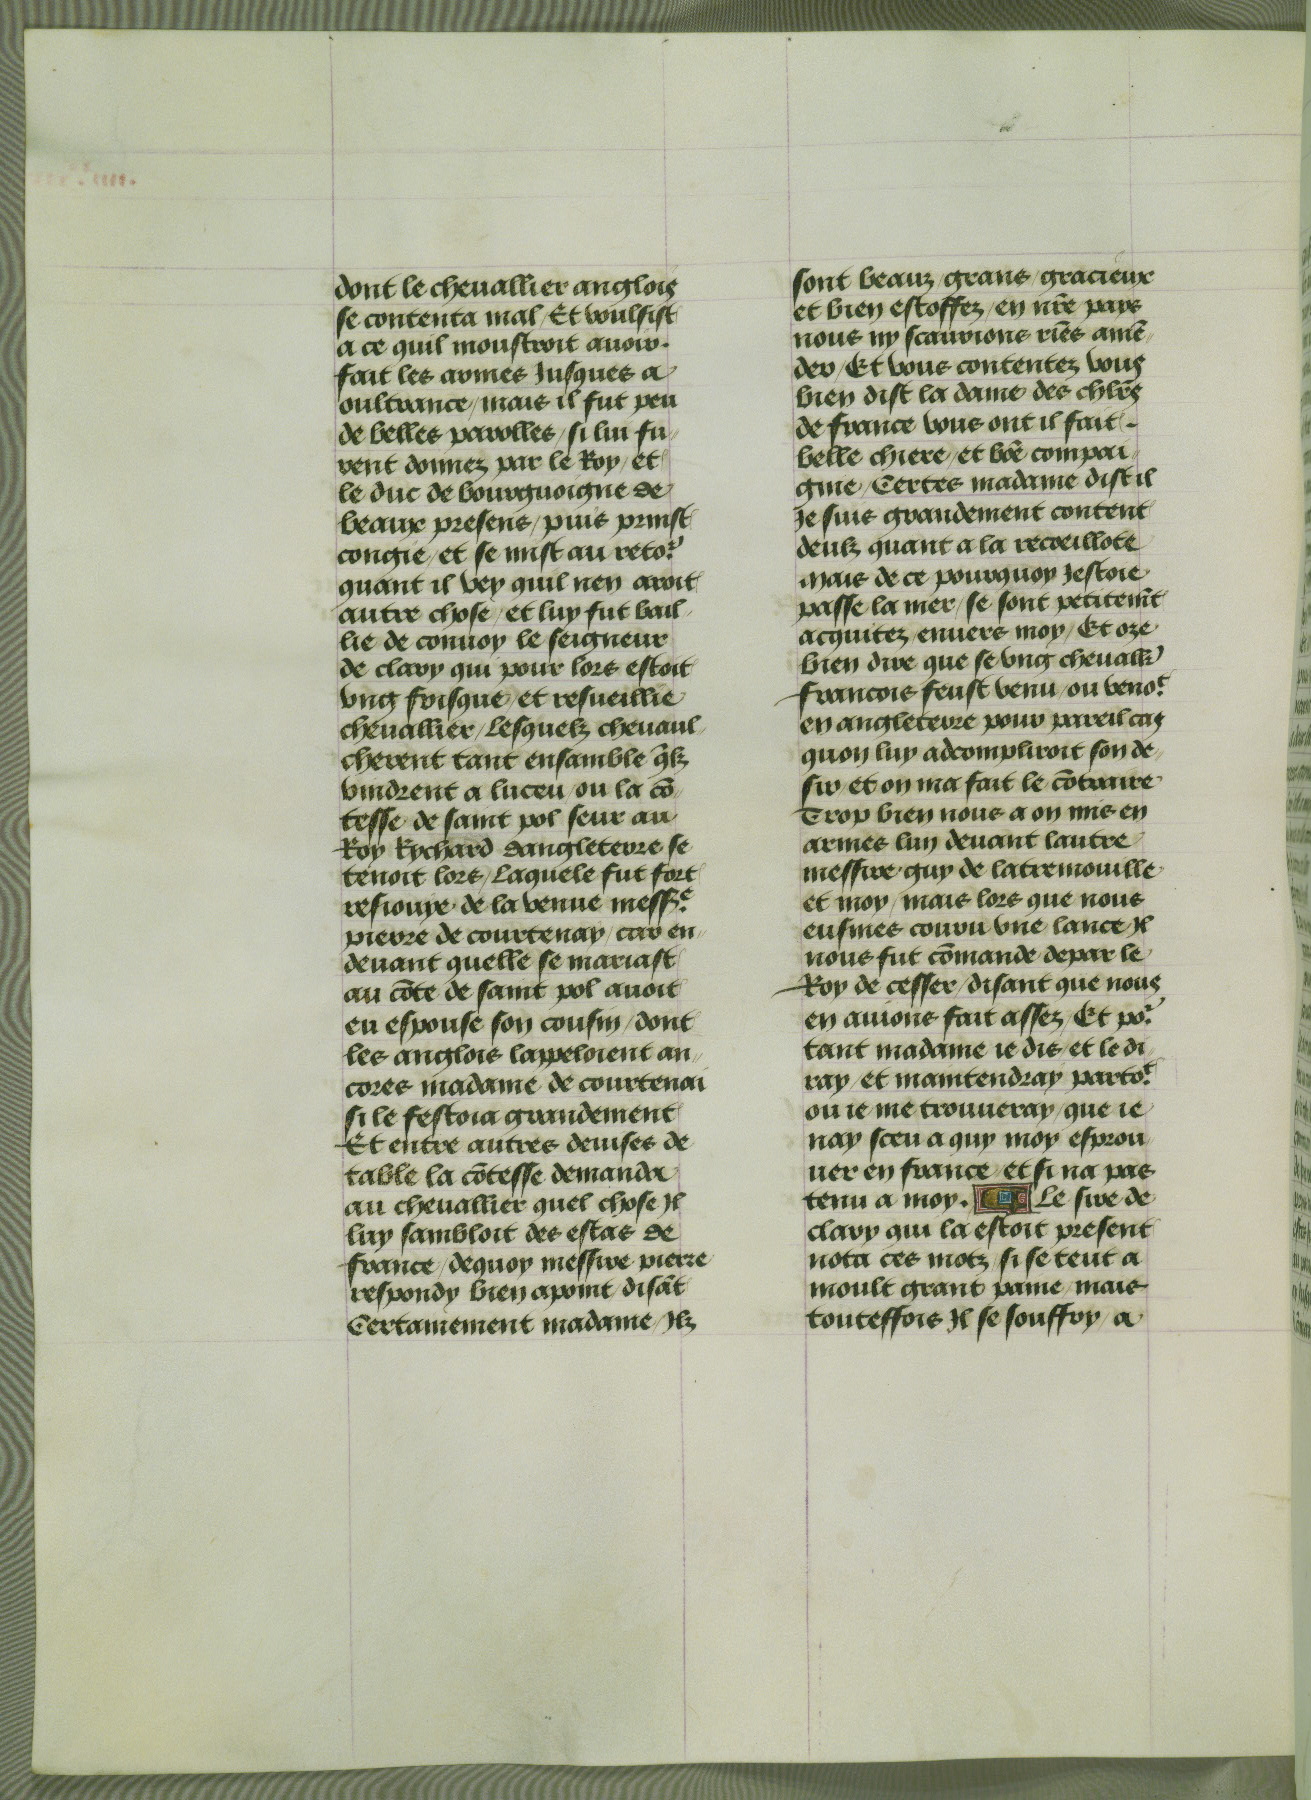 dont le cheuallier anglois
se contenta mal / Et voulsist
a ce quil moustroit auoir.
fait les armes Jusques a
oultrance / mais il fut peu
de belles parolles / si lui fu-
rent donnez par le Roy / et
le duc de bourguoigne de
beaux presens / puis prinst
congie / et se mist au retor
quant il vey quil nen aroit
autre chose / et luy fut bail-
lie de conuoy le seigneur
de clary qui pour lors estoit
vng frisque / et resueillie
cheuallier / Lesquelz cheuaul-
cherent tant ensamble qlz
vindrent a luceu / ou la cō-
tesse de saint pol seur au
Roy Rychard dangleterre se
tenoit lors / Laquele fut fort
resiouye de la venue messre
pierre de courtenay / car en-
deuant quelle se mariast
au cōte de saint pol auoit
eu espouse son cousin / dont
les anglois lappeloient an-
cores madame de courtenai
si le festoia grandement
Et entre autres deuises de
table la cōtesse demanda
au cheuallier quel chose Il
luy sambloit des estas de
france / dequoy messire pierre
respondy bien apoint disāt
Certainement madame / Ilz
sont beauz / grans / gracieux
et bien estoffez / en nr̄e pays
nous ny scaurions riēs amē-
der / Et vous contentez vous
bien dist la dame des chlr̄s
de france vous ont il fait.
belle chiere / et bōe compai-
gnie / Certes madame dist il
Je suis grandement content
deulz quant a la recoeillote
Mais de ce pourquoy Jestoie
passe la mer / se sont petitemt
acquitez enuers moy / Et oze
bien dire que se vng cheuallr
francois feust venu / ou venor
en angleterre pour pareil cas
quon luy adcompliroit son de-
sir / et on ma fait le cōtraire
Trop bien nous a on mis en
armes lun deuant lautre
messire guy de latremouille
et moy / mais lors que nous
eusmes couru vne lance / Il
nous fut cōmande depar le
Roy de cesser / disant que nous
en auions fait assez / Et por
tant madame ie dis et le di-
ray / et maintendray partor
ou ie me trouueray / que ie
nay sceu a quy moy esprou-
uer en france / et si na pas
tenu a moy. Le sire de
clary qui la estoit present
nota ces motz / si se teut a
moult grant paine / mais
touteffois Il se souffry / a